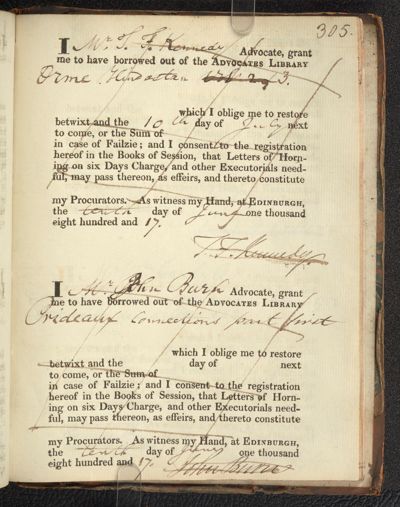 305.
I Mr. T. F. Kennedy Advocate, grant
me to have borrowed out of the ADVOCATES LIBRARY
Orme Hindostan Vol. 2, 3.
which I oblige me to restore
betwixt and the 10th day of July next
to come, or the Sum of
in case of Failzie; and I consent to the registration
hereof in the Books of Session, that Letters of Horn-
ing on six Days Charge, and other Executorials need-
ful, may pass thereon, as effeirs, and thereto constitute
my Procurators. As witness my Hand, at EDINBURGH,
the tenth day of June one thousand
eight hundred and 17.
T. F. Kennedy.
I Mr. John Burn Advocate, grant
me to have borrowed out of the ADVOCATES LIBRARY
Prideaux Connections part first
which I oblige me to restore
betwixt and the day of next
to come, or the Sum of
in case of Failzie; and I consent to the registration
hereof in the Books of Session, that Letters of Horn-
ing on six Days Charge, and other Executorials need-
ful, may pass thereon, as effeirs, and thereto constitute
my Procurators. As witness my Hand, at EDINBURGH,
the tenth day of June one thousand
eight hundred and 17. John Burn